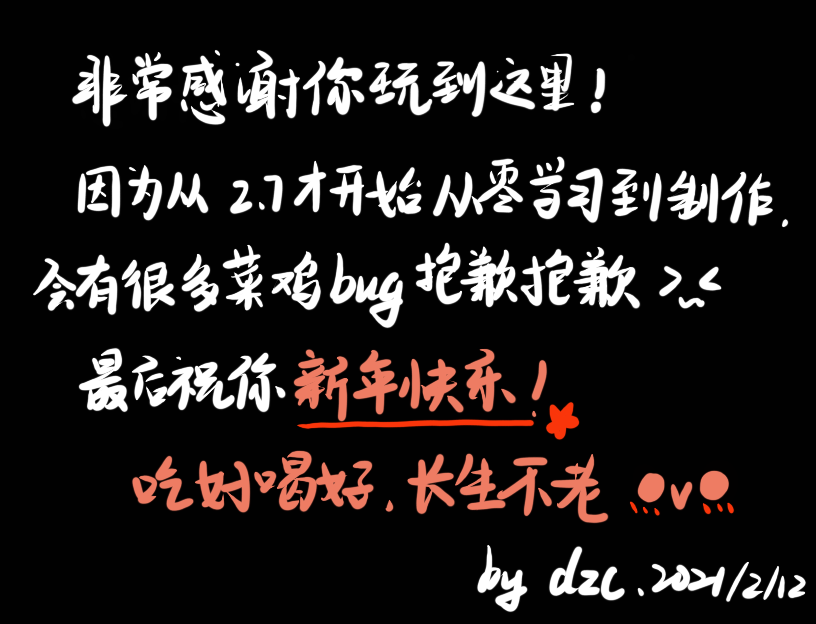 非常感谢你玩到这里！
因为从2.7才开始从零学习到制作.
会有很多菜鸡bug抱歉抱歉>~<
最后祝你新年快乐！
吃好喝好.长生不老 ●v●
by dzc.2021/2/12